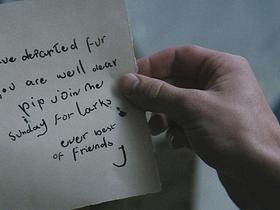 ve departed fur
you are well dear
pip join me
sunday for larks
ever best
of friends
J